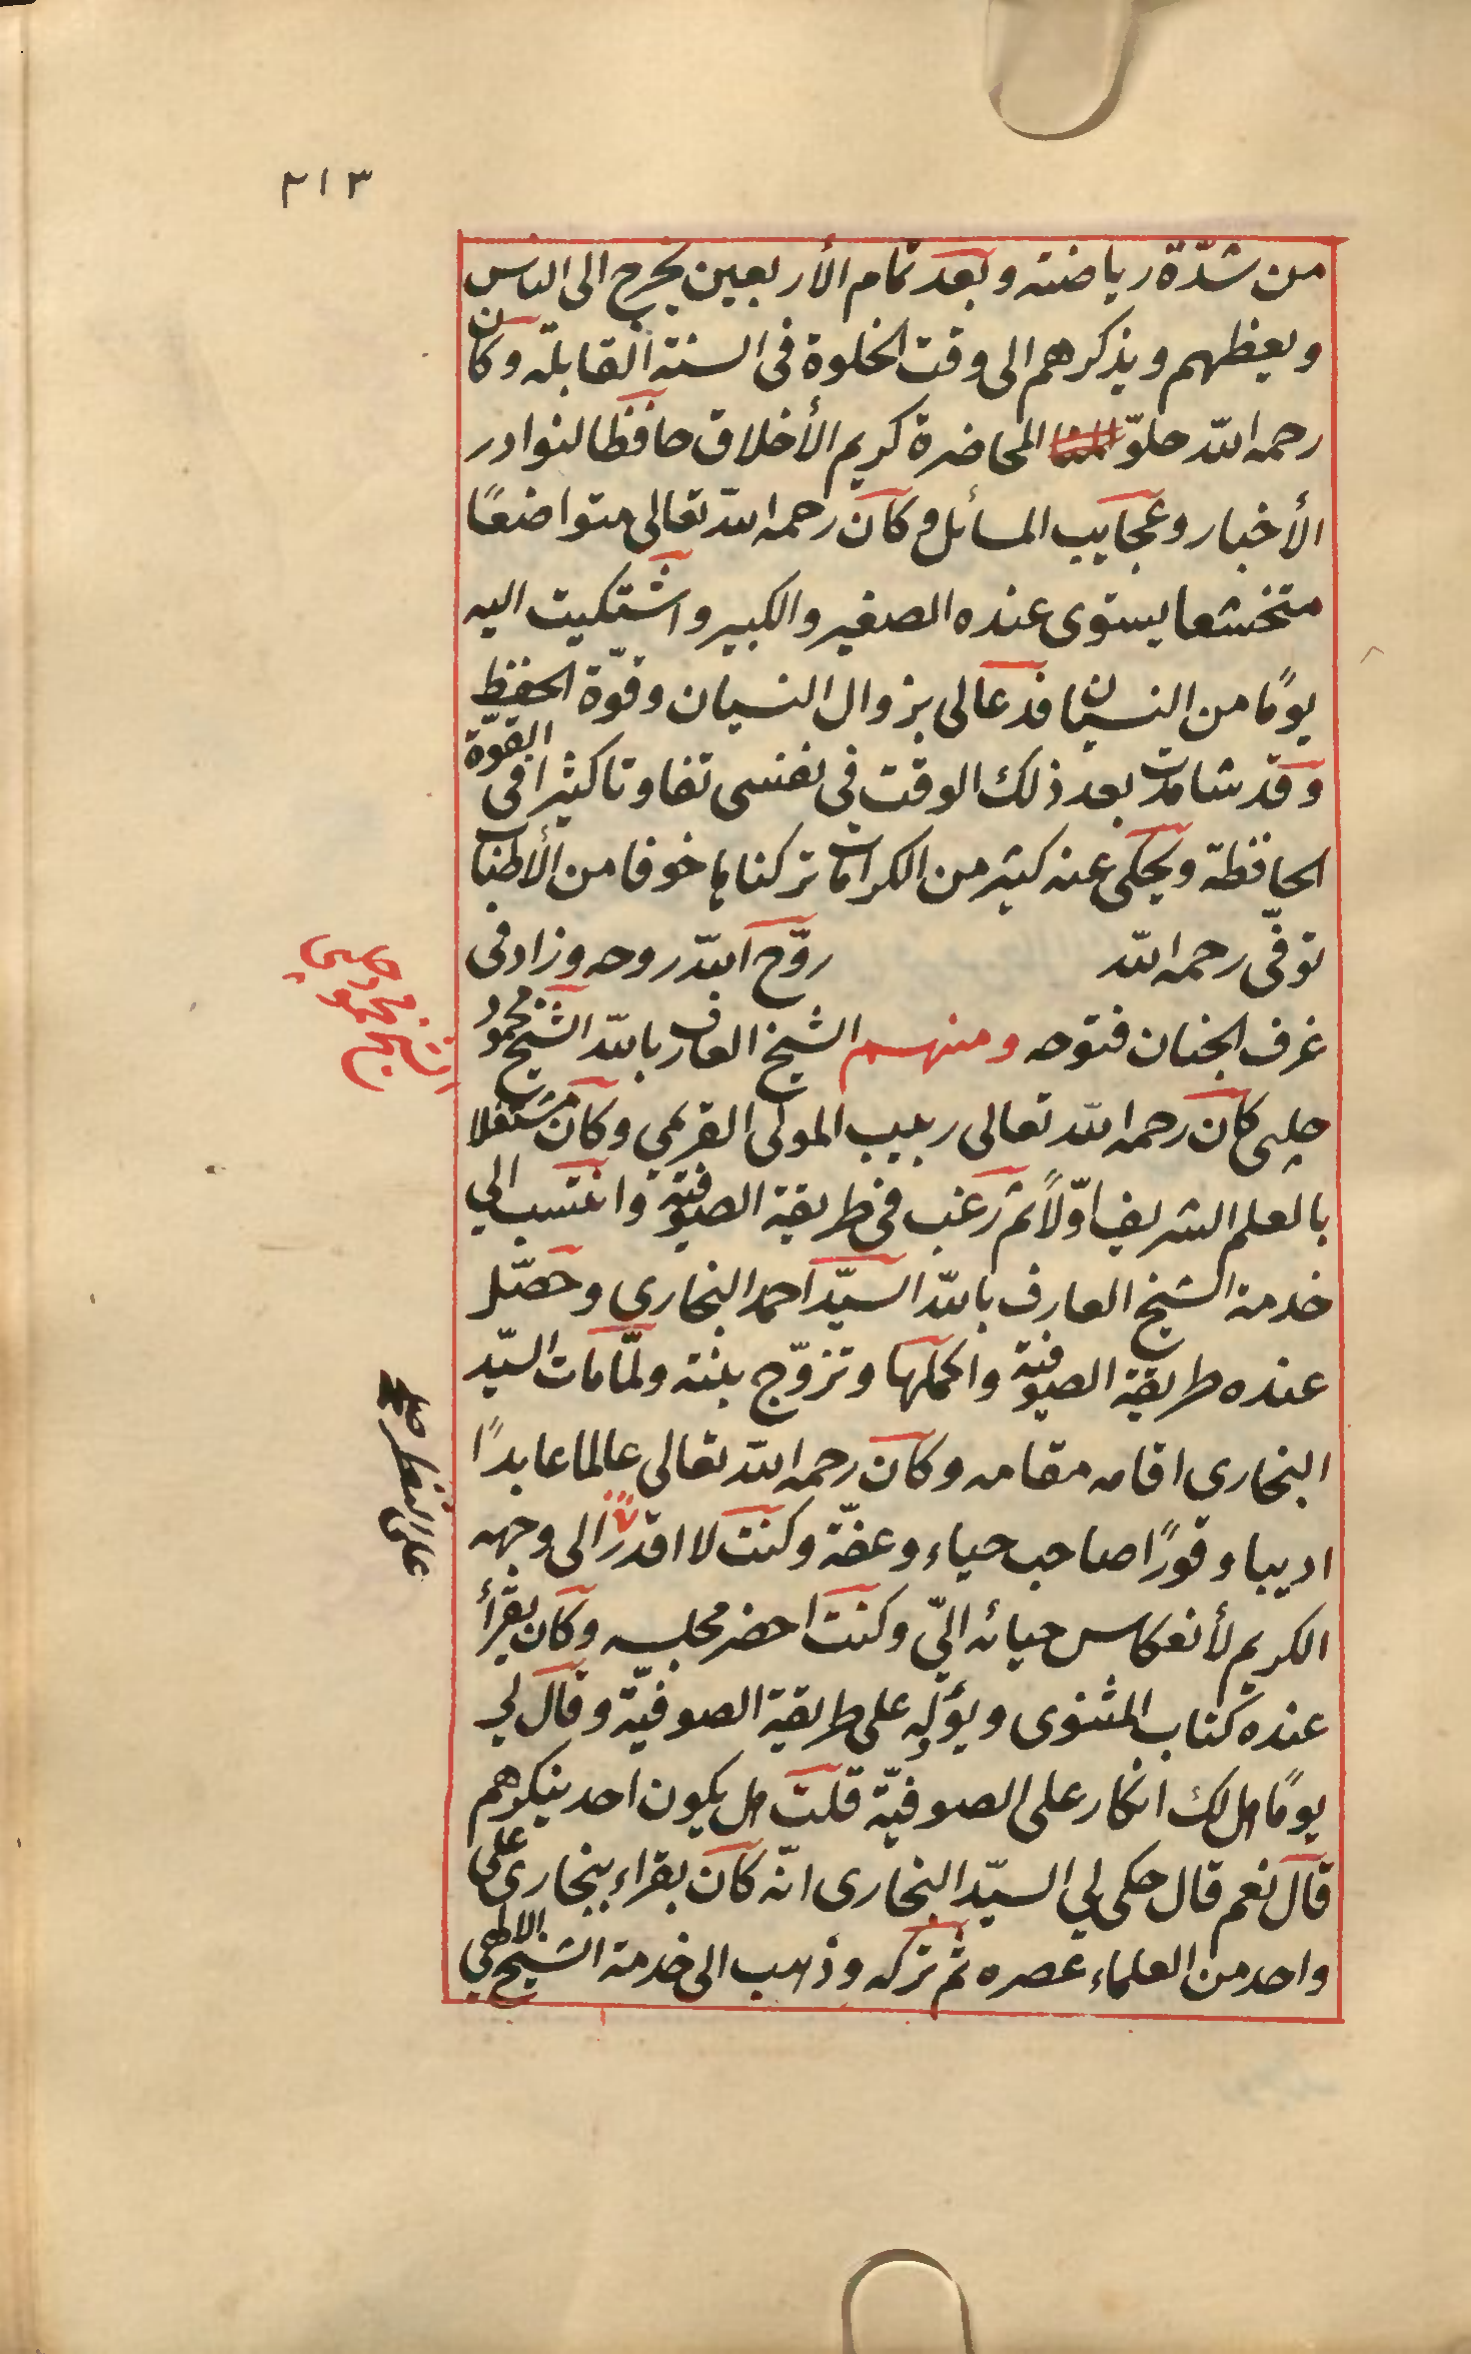 ٣١٣
من شدّة رياضته وبعد تمام الأربعين يخرج الى الناس
ويعظهم ويذكرهم الى وقت الخلوة فى السنة القابلة وكان
رحمه الله حلوّ المحاضرة كريم الأخلاق حافظا لنوادر
الأخبار وعجايب المسائل وكان رحمه الله تعالى متواضعًا
متخشعا يستوى عنده الصغير والكبير واشتكيت اليه
يومًا من النسيان فدعا لى بزوال النسيان وقوّة الحفظ
وقد شاهدت بعد ذلك الوقت فى نفسى تفاوتا كثيرا فى القوّة
الحافظة ويحكى عنه كثير من الكرامات تركناها خوفا من الأطناب
توفّى رحمه الله روّح الله روحه وزاد فى
غرف الجنان فتوحه ومنهم الشيخ العارف بالله الشيخ محمود
چلبى كان رحمه الله تعالى ربيب المولى القريمي وكان مشتغلا
بالعلم الشريف اوّلاً ثم رغب فى طريقة الصوفية وانتسب الي
خدمة الشيخ العارف بالله السيّد احمد البخاري وحصّل
عنده طريقة الصوفية واكملها وتزوّج بنته ولمّا مات السيّد
البخارى اقامه مقامه وكان رحمه الله تعالى عالما عابدًا
اديبا وقورًا صاحب حياء وعفّة وكنت لا اقدر الى وجهه
الكريم لأنعكاس حيائه اليّ وكنت احضر مجلسه وكان يقرأ
عنده كتاب المثنوى ويؤله على طريقة الصوفيّة وقال لي
يومًا هل لك انكار على الصوفيّة قلت هل يكون احد ينكرهم
قال نعم قال حكى لي السيّد البخارى انّه كان يقراء ببخارى على
واحد من العلماء عصره ثم تركه وذهب الى خدمة الشيخ الالهي
الشيخ محمود چلبى
على النظر صح